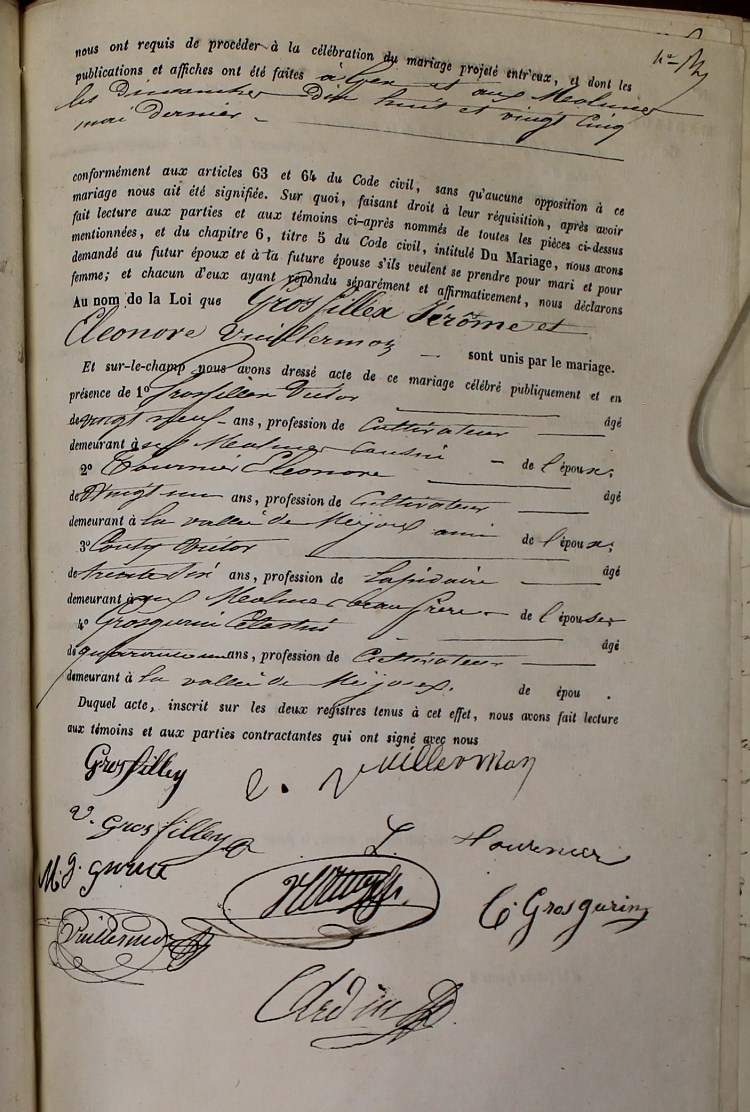 nous ont requis de procéder à la célébration du mariage projeté entr'eux, et dont les
publications et affiches ont été faites à Gex et aux Moulines
les Dimanches Dix huit et vingt Cinq
mai Dernier. –
conformément aux articles 63 et 64 du Code civil, sans qu'aucune opposition à ce
mariage nous ait été signifiée. Sur quoi, faisant droit à leur réquisition, après avoir
fait lecture aux parties et aux témoins ci-après nommés de toutes les pièces ci-dessus
mentionnées, et du chapitre 6, titre 5 du Code civil, intitulé Du Mariage, nous avons
demandé au futur époux et à la future épouse s'ils veulent se prendre pour mari et pour
femme; et chacun d'eux ayant répondu séparément et affirmativement, nous déclarons
Au nom de la Loi que Grosfillex Jérôme et
Eléonore Vuillermoz – sont unis par le mariage.
Et sur-le-champ nous avons dressé acte de ce mariage célébré publiquement et en
présence de 1º Grosfillex Victor âgé
de vingt neuf – ans, profession de Cultivateur
demeurant à aux Moulines Cousin – de l'époux;
2º Tournier Eléonore âgé
de Vingt un ans, profession de Cultivateur
demeurant à la vallée de Mijoux ami de l'époux;
3º Victor âgé
de trente six ans, profession de Lapidaire
demeurant à aux Moulines beau frère – de l'épouse;
4º Grosgurin Célestin âgé
de quarante un ans, profession de Cultivateur
demeurant à la vallée de Mijoux. de épou .
Duquel acte, inscrit sur les deux registres tenus à cet effet, nous avons fait lecture
aux témoins et aux parties contractantes qui ont signé avec nous
Grosfilley
e. vuillermoz
v. Grosfilley
L Tournier
M. J. gurin
C. Grosgurin
Vuillermoz